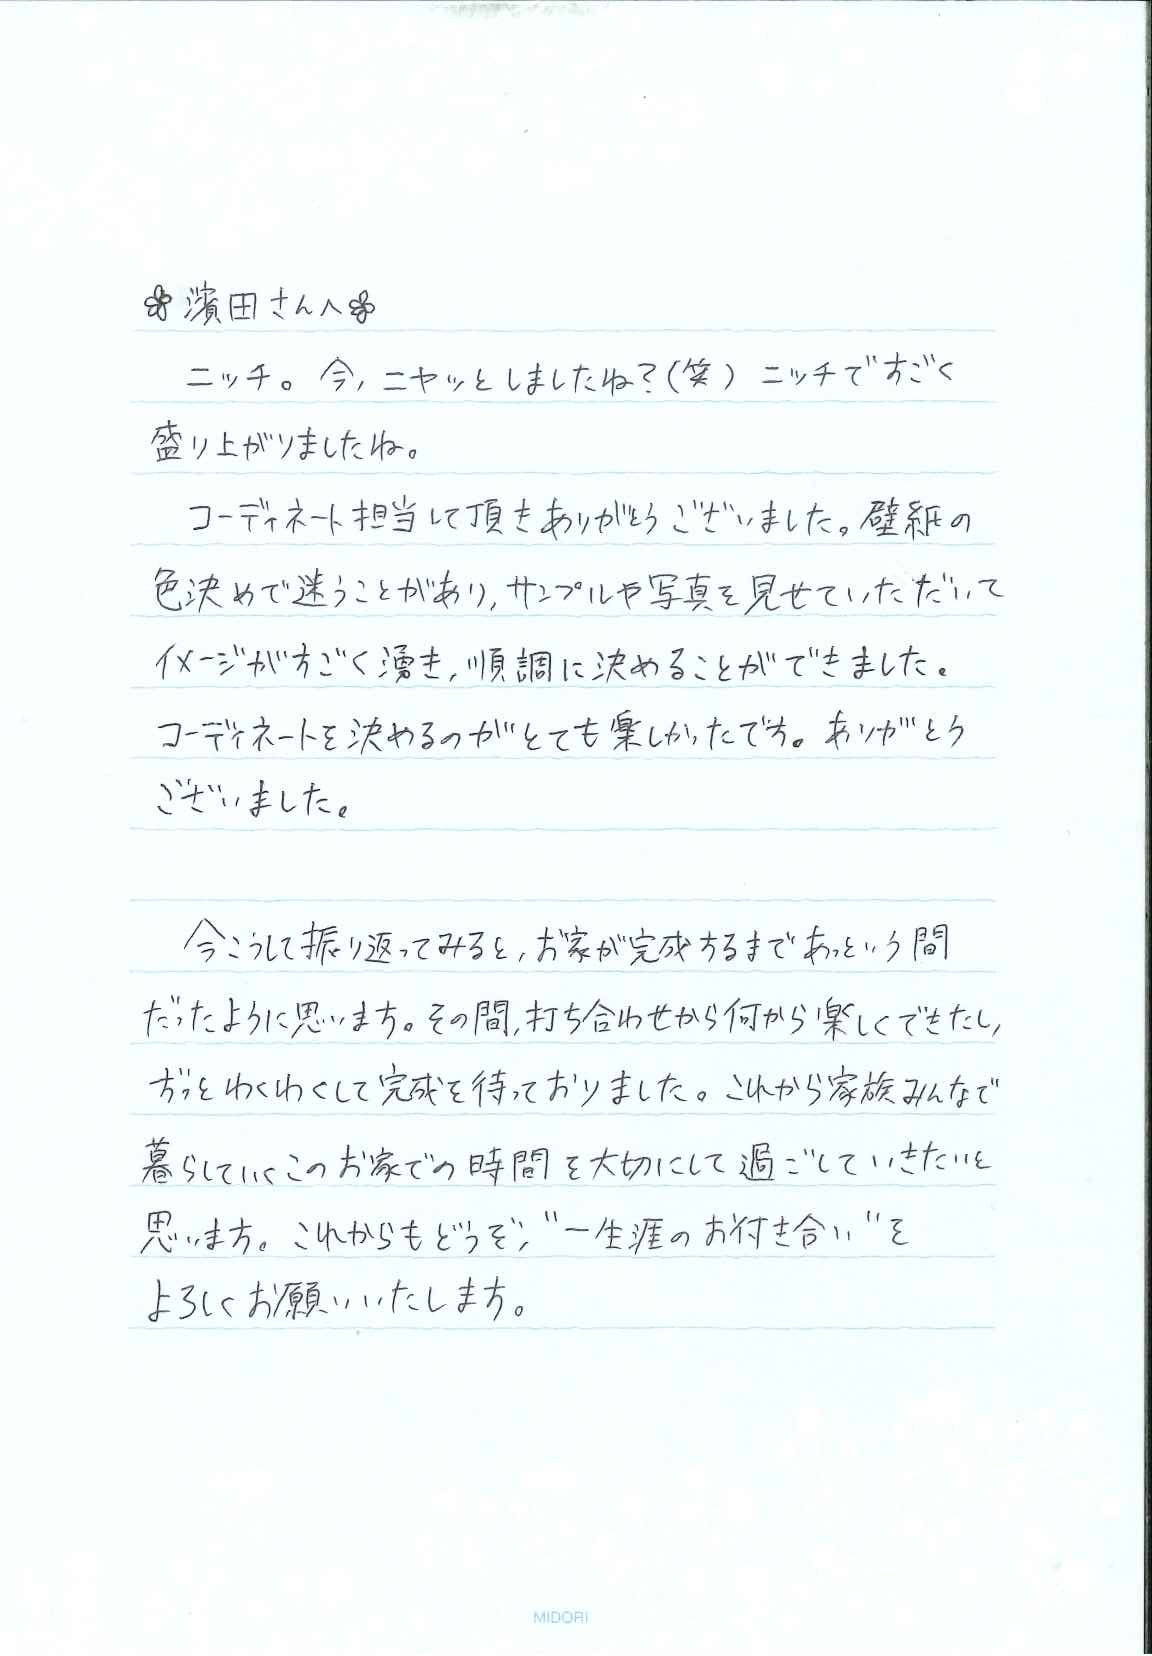 ✿濱田さんへ✿
ニッチ。今、ニヤッとしましたね？(笑) ニッチですごく
盛り上がりましたね。
コーディネート担当して頂きありがとうございました。壁紙の
色決めで迷うことがあり、サンプルや写真を見せていただいて
イメージがすごく湧き、順調に決めることができました。
コーディネートを決めるのがとても楽しかったです。ありがとう
ございました。
今こうして振り返ってみると、お家が完成するまであっという間
だったように思います。その間、打ち合わせから何から楽しくできたし、
ずっとわくわくして完成を待っておりました。これから家族みんなで
暮らしていくこのお家での時間を大切にして過ごしていきたいと
思います。これからもどうぞ、"一生涯のお付き合い"を
よろしくお願いいたします。
MIDORI